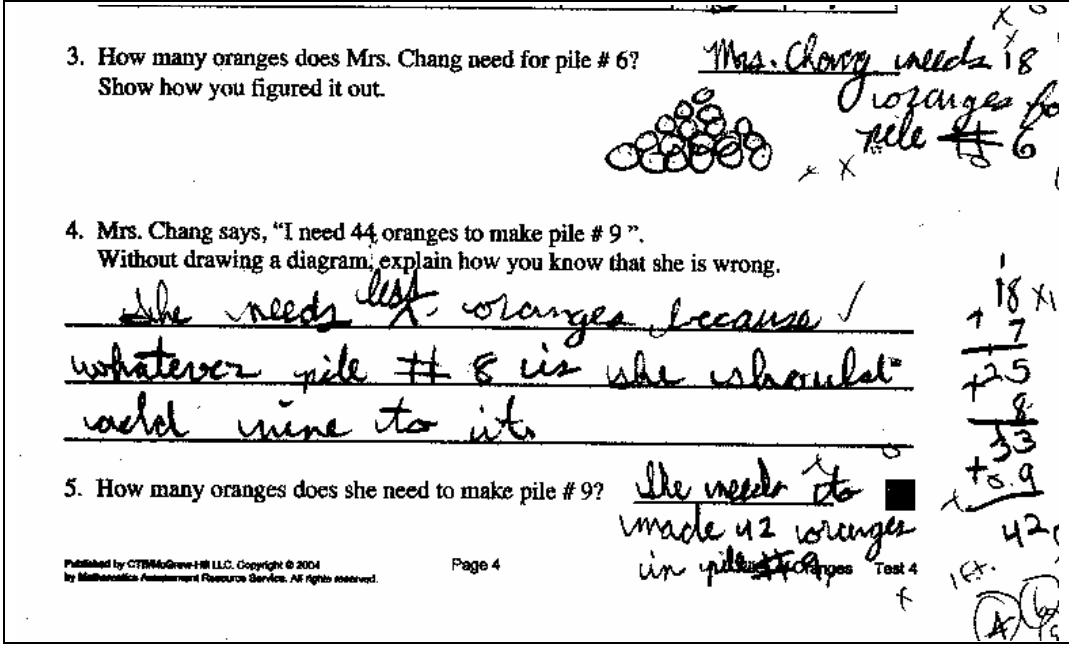 3. How many oranges does Mrs. Chang need for pile # 6?
Show how you figured it out.
Mrs. Chang needs 18
oranges fo
pile # 6
x x
4. Mrs. Chang says, “I need 44 oranges to make pile # 9 ”.
Without drawing a diagram, explain how you know that she is wrong.
She needs less oranges because ✓
whatever pile # 8 is she should
add nine to it.
1
18 x1
+ 7
+25
8
33
+ 9
42
5. How many oranges does she need to make pile # 9?
She needs to
made 42 oranges
in pile # 9.
Published by CTB/McGraw-Hill LLC. Copyright © 2004
by Mathematics Assessment Resource Service. All rights reserved.
Page 4
Oranges Test 4